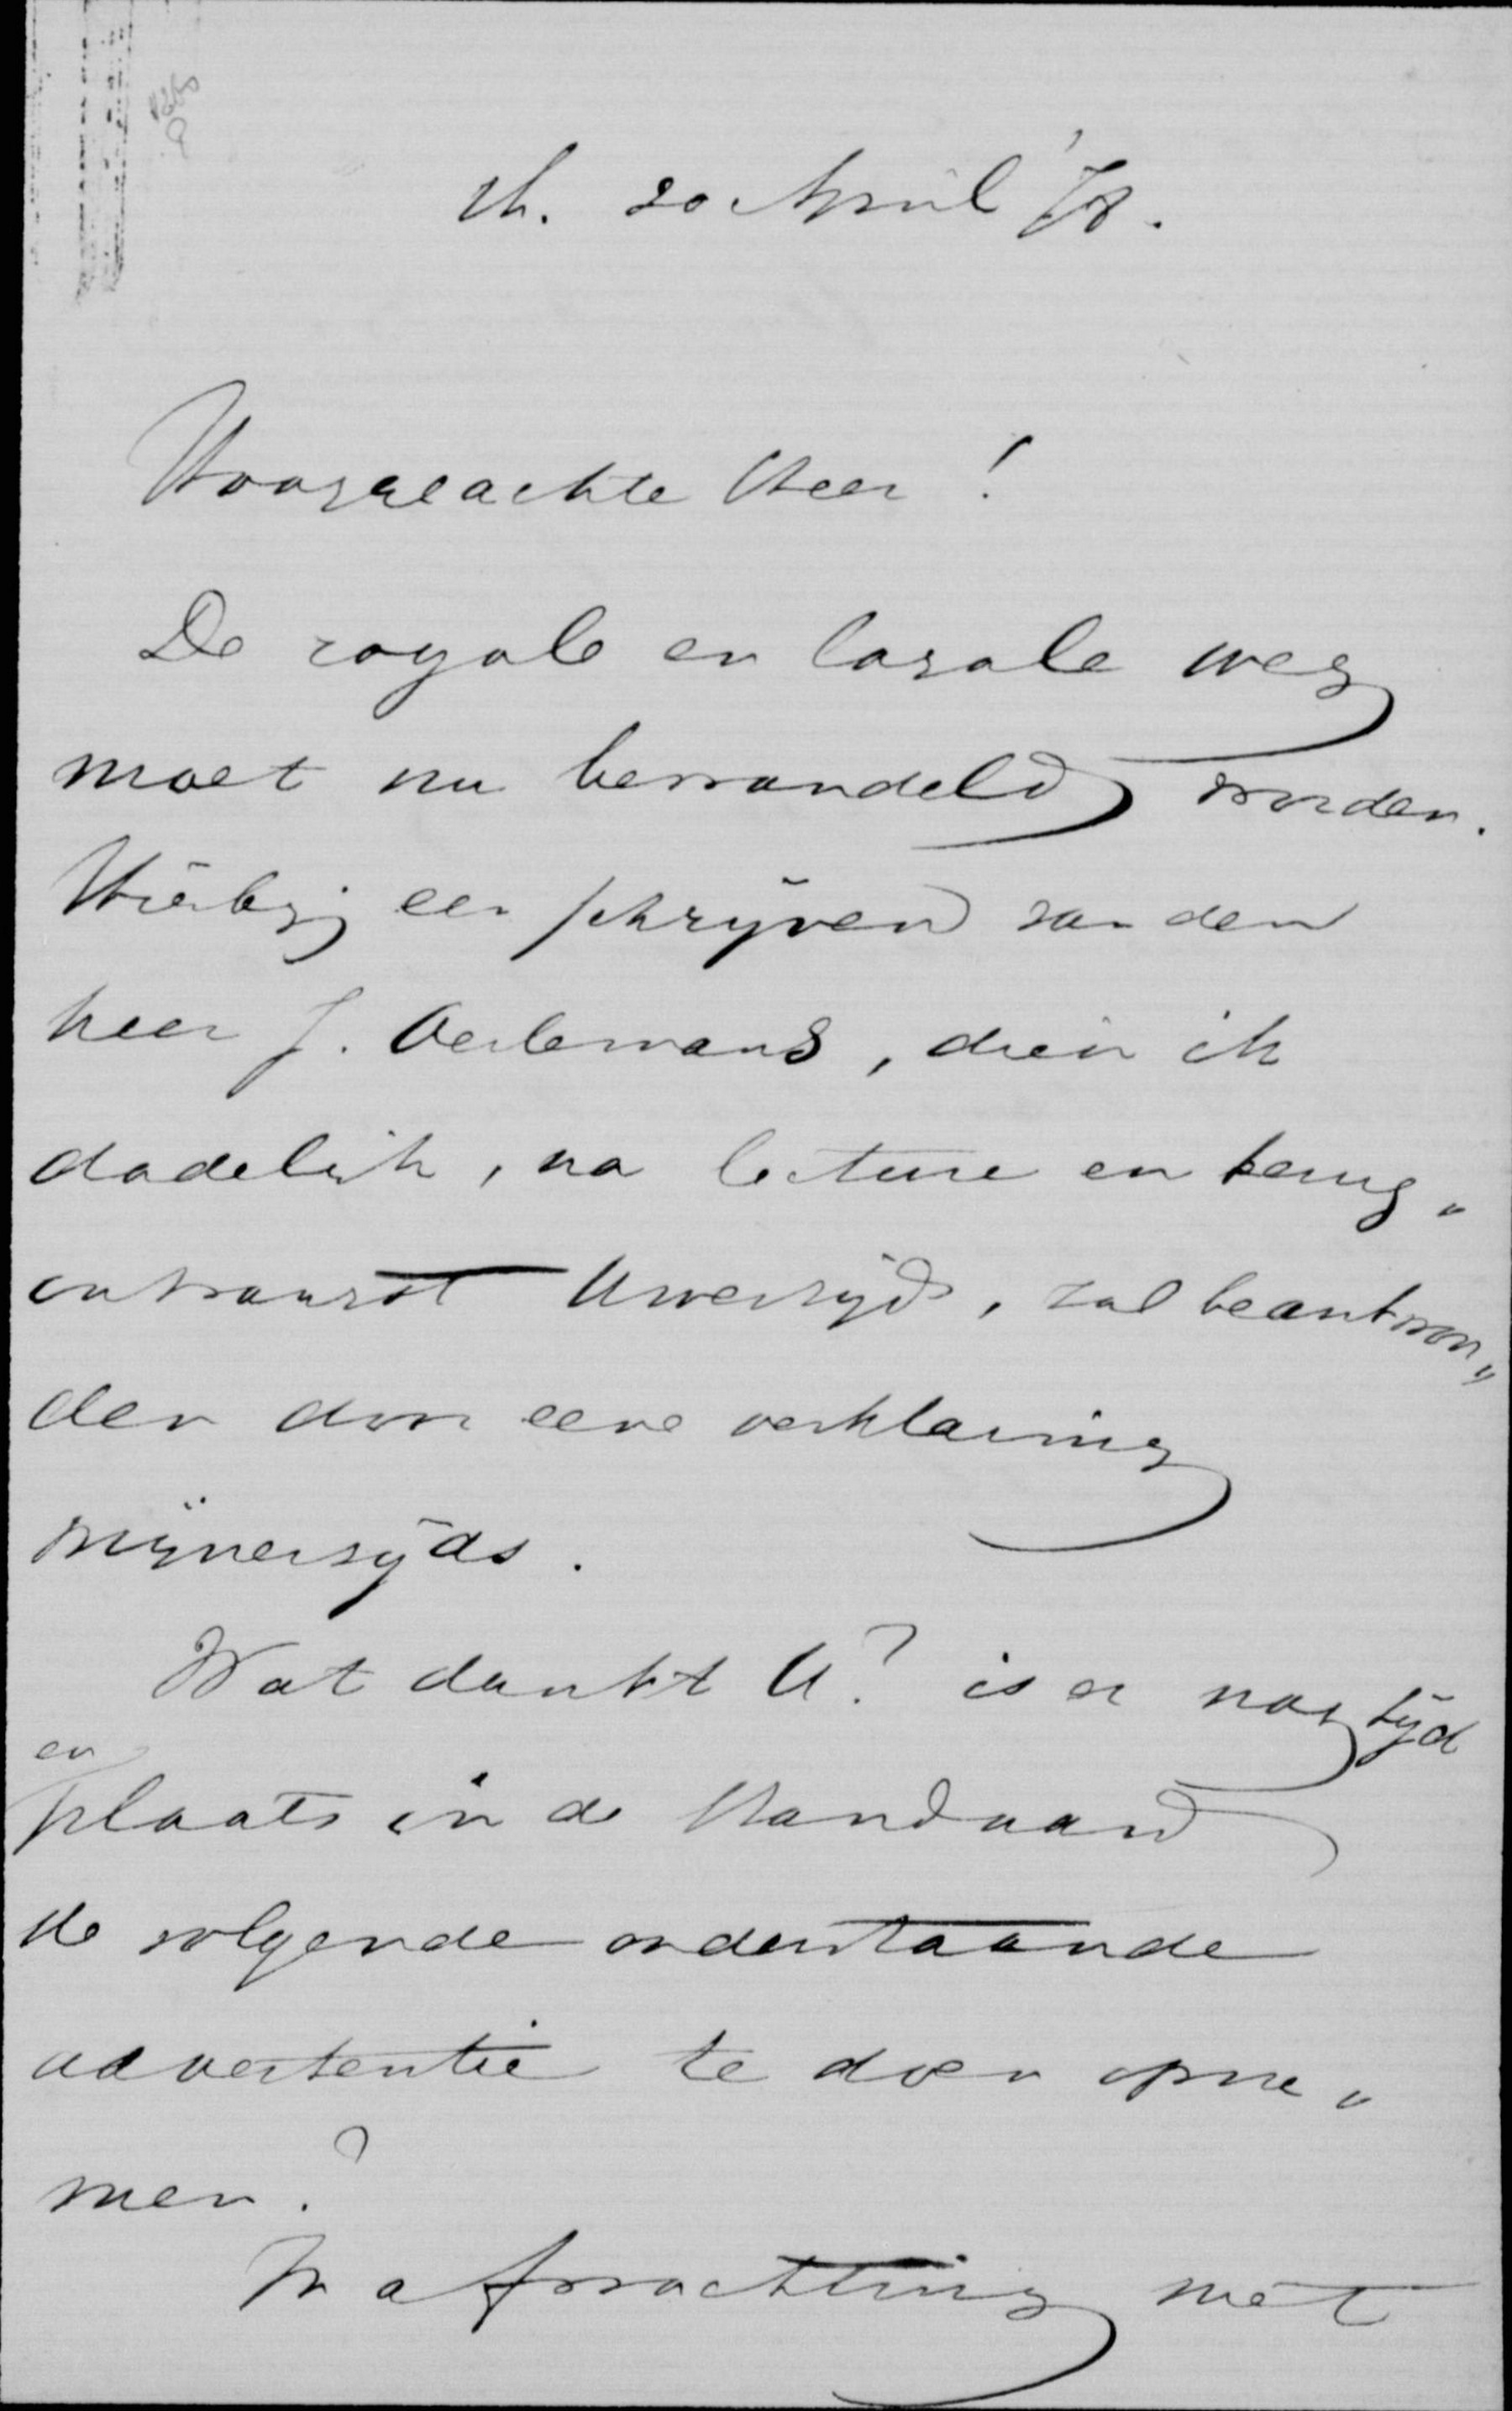 20 April '78.
Hooggeachte Heer!
De royale en loyale weg
moet nu bewandeld worden.
Hierbij een schrijven van den
heer J. Oerlemans, dien ik
dadelijk, na lecture en terug„
ontvangst Uwerzijds, zal beantwoor„
den door eene verklaring
mijnerzijds.
Wat dunkt U? is er nog tijd
en
plaats in de Standaard
de volgende onderstaande
advertentie te doen opne„
men?
In afwachting met